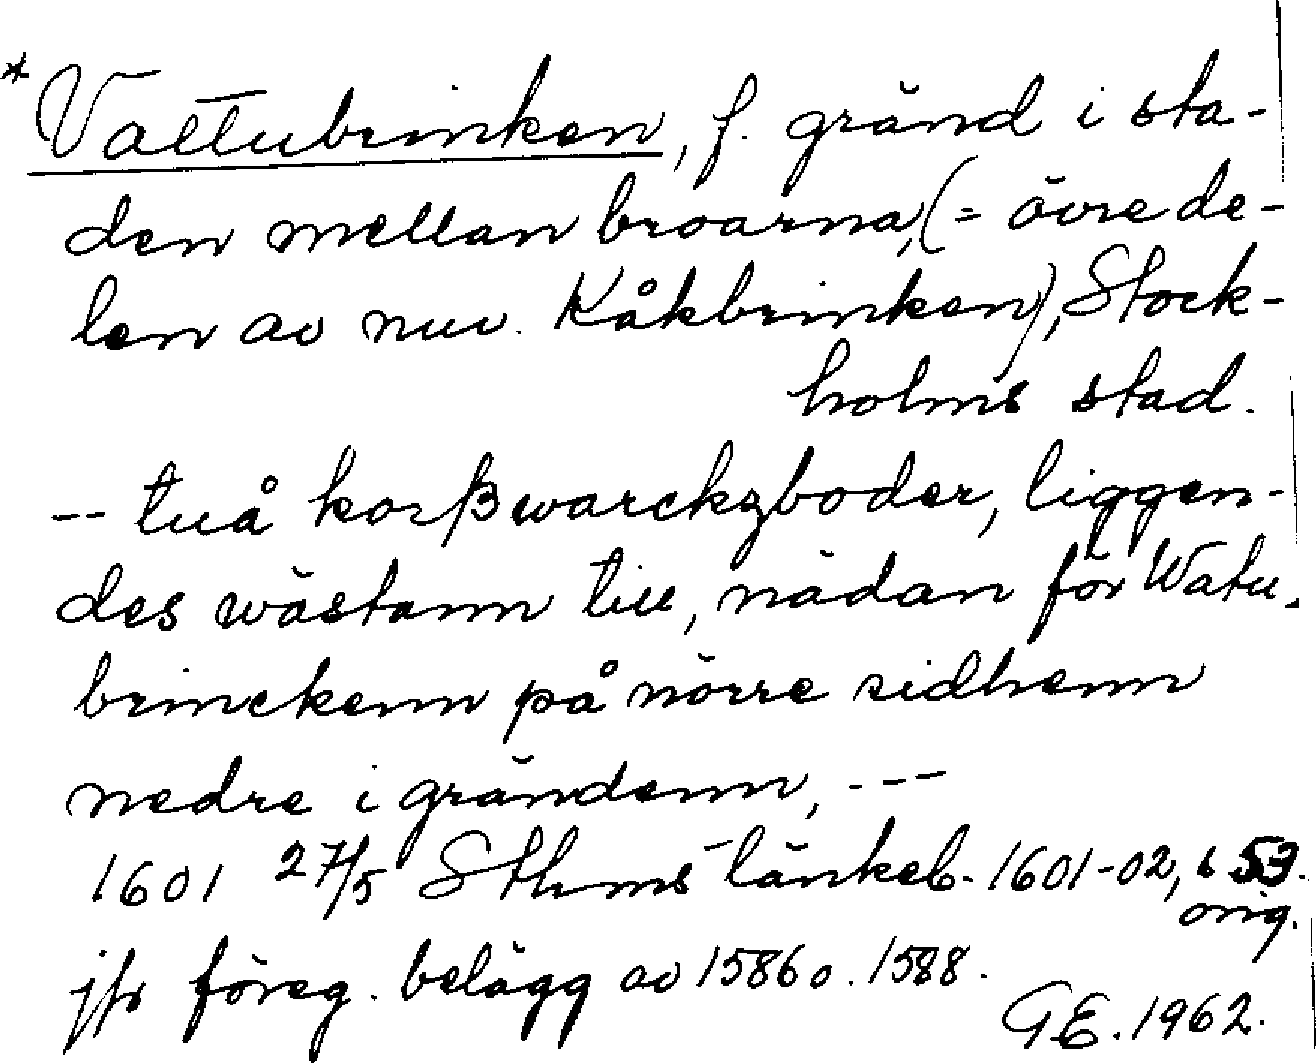 *Vattubrinken, f. gränd i sta-
den mellan broarna, (= övre de-
len av nuv. Kåkbrinken), Stock-
holms stad.
-- tuå korßwarckzboder, liggen-
des wästann till, nädan för Watu-
brinckenn på nörre sidhenn
nedre i grändenn, ---
1601 27/5 Sthms tänkeb. 1601-02, s 53.
orig.
jfr föreg. belägg av 1586 o. 1588.
G.E. 1962.